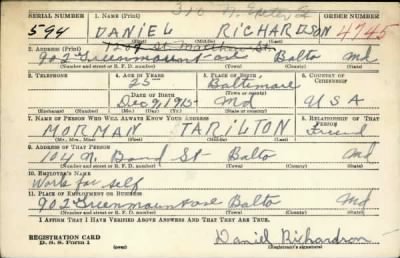 310 N. Exeter St
SERIAL NUMBER 1. NAME (Print) ORDER NUMBER
594 DANIEL RICHARDSON 4745
(First) (Middle) (Last)
1209 St. Matthew St.
2. ADDRESS (Print)
902 Greenmount ave Balto Md
(Number and street or R. F. D. number) (Town) (County) (State)
3. TELEPHONE 4. AGE IN YEARS 5. PLACE OF BIRTH 6. COUNTRY OF CITIZENSHIP
25 Baltimore
DATE OF BIRTH (Town or county)
Dec 9, 1915 Md U S A
(Exchange) (Number) (Mo.) (Day) (Yr.) (State or country)
7. NAME OF PERSON WHO WILL ALWAYS KNOW YOUR ADDRESS 8. RELATIONSHIP OF THAT PERSON
MORMAN TARILTON Friend
(Mr., Mrs., Miss) (First) (Middle) (Last)
9. ADDRESS OF THAT PERSON
104 N. Bond St Balto Md
(Number and street or R. F. D. number) (Town) (County) (State)
10. EMPLOYER'S NAME
Works for self
11. PLACE OF EMPLOYMENT OR BUSINESS
902 Greenmount ave Balto Md
(Number and street or R. F. D. number) (Town) (County) (State)
I AFFIRM THAT I HAVE VERIFIED ABOVE ANSWERS AND THAT THEY ARE TRUE.
REGISTRATION CARD
D. S. S. Form 1 (over) Daniel Richardson
(Registrant's signature)